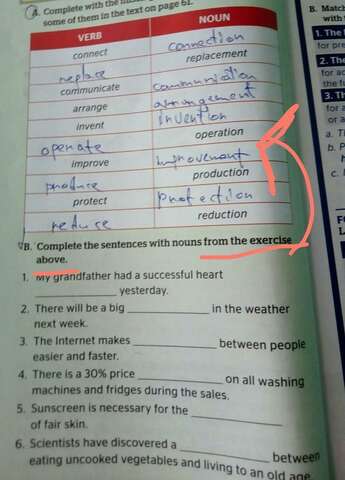 A. Complete with the missing
some of them in the text on page 61.
VERB NOUN
connect connection
replace replacement
communicate communication
arrange arrangement
invent invention
operate operation
improve improvement
produce production
protect protection
reduce reduction
B. Complete the sentences with nouns from the exercise
above.
1. My grandfather had a successful heart
____________ yesterday.
2. There will be a big ____________ in the weather
next week.
3. The Internet makes ____________ between people
easier and faster.
4. There is a 30% price ____________ on all washing
machines and fridges during the sales.
5. Sunscreen is necessary for the ____________
of fair skin.
6. Scientists have discovered a ____________ between
eating uncooked vegetables and living to an old age.
B. Match
with
1. The
for pre
2. The
for ac
the
3. Th
for a
or a
a. T
b. P
c.